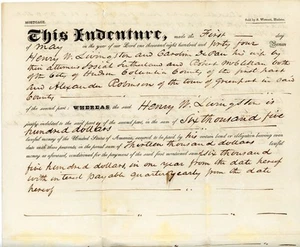 MORTGAGE.
This Indenture, made the First day
of May in the year of our Lord one thousand eight hundred and forty four Between
Henry W. Livingston and Caroline De Pau his wife by
their attorneys Josiah Sutherland and Robert McClellan both
of the City of Hudson Columbia County of the first part
And Alexander Robinson of the town of Greenport in said
County
of the second part; WHEREAS the said Henry W. Livingston is
justly indebted to the said party of the second part, in the sum of Six thousand five
hundred dollars
lawful money of the United States of America, secured to be paid by his certain bond or obligation bearing even
date with these presents, in the penal sum of Thirteen thousand dollars lawful
money as aforesaid, conditioned for the payment of the said first mentioned sum of Six thousand
five hundred dollars in one year from the date hereof
with interest payable quarter yearly from the date
hereof